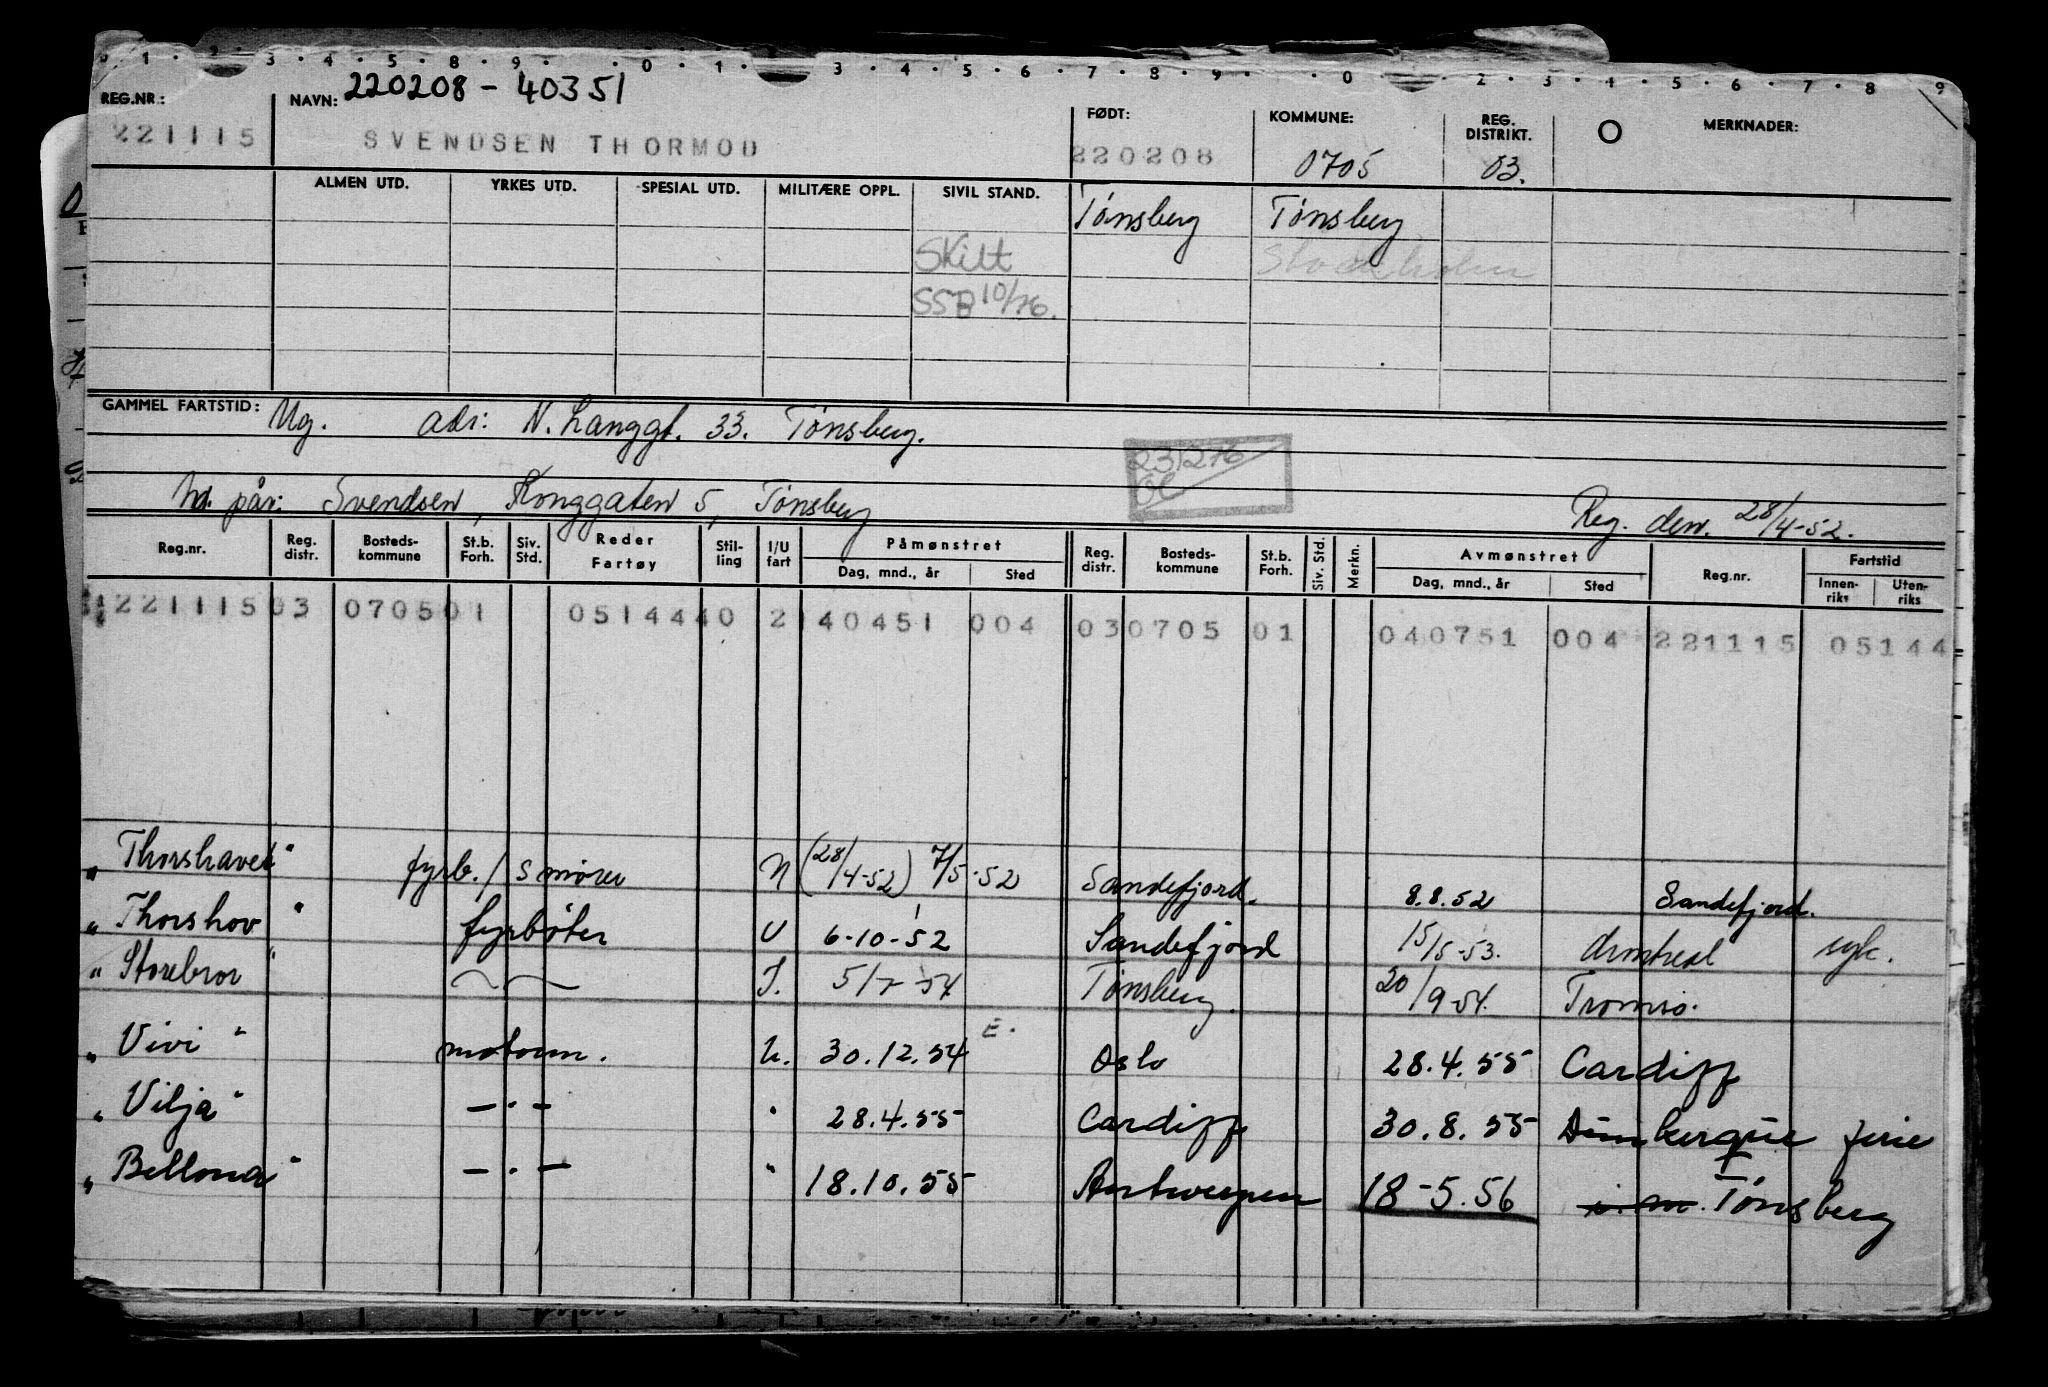 1 · 2 · 3 · 4 · 5 · 8 · 9 · 0 · 1 · 3 · 4 · 5 · 6 · 7 · 8 · 9 · 0 · 2 · 3 · 4 · 5 · 6 · 7 · 8 9
REG.NR.: NAVN: 220208 - 40351 FØDT: KOMMUNE: REG. DISTRIKT. O MERKNADER:
221115 SVENDSEN THORMOD 220208 0705 03.
ALMEN UTD. YRKES UTD. SPESIAL UTD. MILITÆRE OPPL. SIVIL STAND. Tønsberg Tønsberg
Skilt Stockholm
SSB 10/76.
GAMMEL FARTSTID: Ug. adr: N. Langgt. 33. Tønsberg.
231276
OC
Nd. pår: Svendsen, Konggaten 5, Tønsberg Reg. den. 28/4-52.
Reg.nr. Reg. distr. Bosteds-kommune St.b. Forh. Siv. Std. Reder Fartøy Stil-ling I/U fart Påmønstret Dag, mnd., år Sted Reg. distr. Bosteds-kommune St.b. Forh. Siv. Std. Merkn. Avmønstret Dag, mnd., år Sted Reg.nr. Fartstid Innen-riks Uten-riks
221115 03 0705 01 0514440 2 140451 004 03 0705 01 040751 004 221115 05144
„Thorshavet" fyrb./smører U (28/4-52) 7/5-52 Sandefjord. 8.8.52 Sandefjord.
„Thorshov" fyrbøter U 6-10-52 Sandefjord 15/5-53. Montreal syk.
„Storebror" I. 5/7-54 Tønsberg. 20/9-54. Tromsø.
„Vivi" motorm. U. 30.12.54 E. Oslo 28.4.55 Cardiff
„Vilja" -·- " 28.4.55 Cardiff 30.8.55 Dunkerque ferie
„Bellona" -·- " 18.10.55 Antwerpen 18-5.56 i. m. Tønsberg